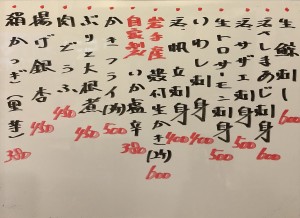 生鯵刺身 600
活〆しまあじ刺身 600
活サザエ刺身 600
生トロサーモン刺身 500
活帆立刺身 400
いわし刺身 400
岩手産 殻付生かき(2ヶ) 600
自家製 いか塩辛 380
かきフライ(3ヶ) 500
ぶりと大根煮 480
肉どうふ 480
揚げ銀杏 480
絹かつぎ(里芋) 380